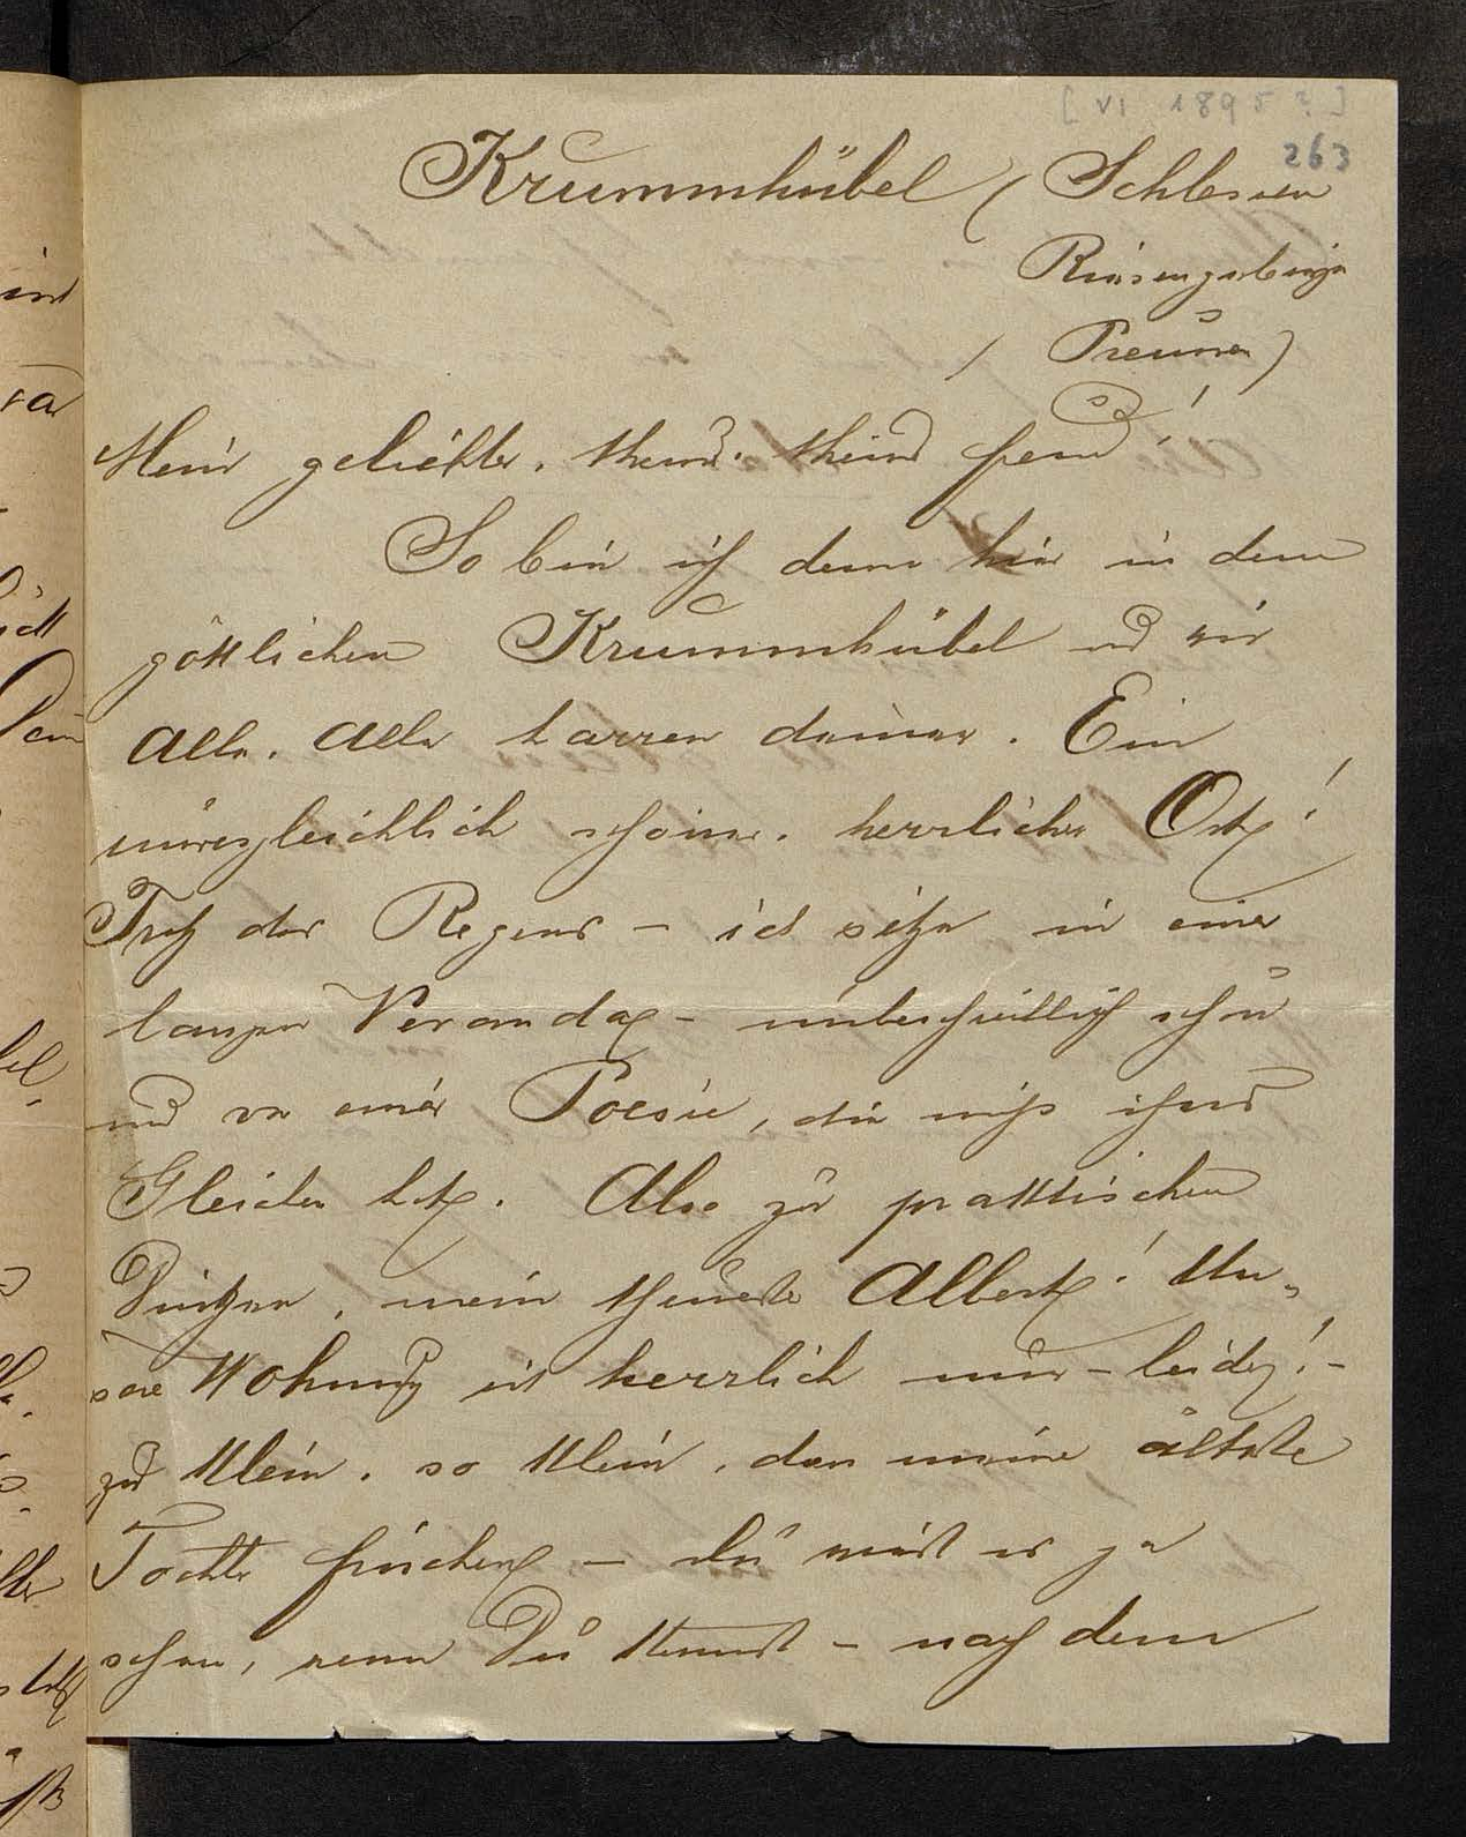 [VI 1895?]
263
Krummhübel (Schlesien
Riesengebirge
/ Preussen)
Mein geliebter, theurer, Freund!
So bin ich denn hier in dem
göttlichen Krummhübel und wir
Alle, Alle harren deiner. Ein
unvergleichlich schöner, herrlicher Ort!
Trotz des Regens – ich sitze in einer
langen Veranda – unbeschreiblich schön
und von einer Poesie, die nichts
Gleichen hat. Also zu praktischen
Dingen, mein theuerster Albert! Un-
sere Wohnung ist herrlich nur – leider! –
zu klein, so klein, dass meine älteste
Tochter – Du wirst es ja
sehen, wenn Du kommst – nach dem